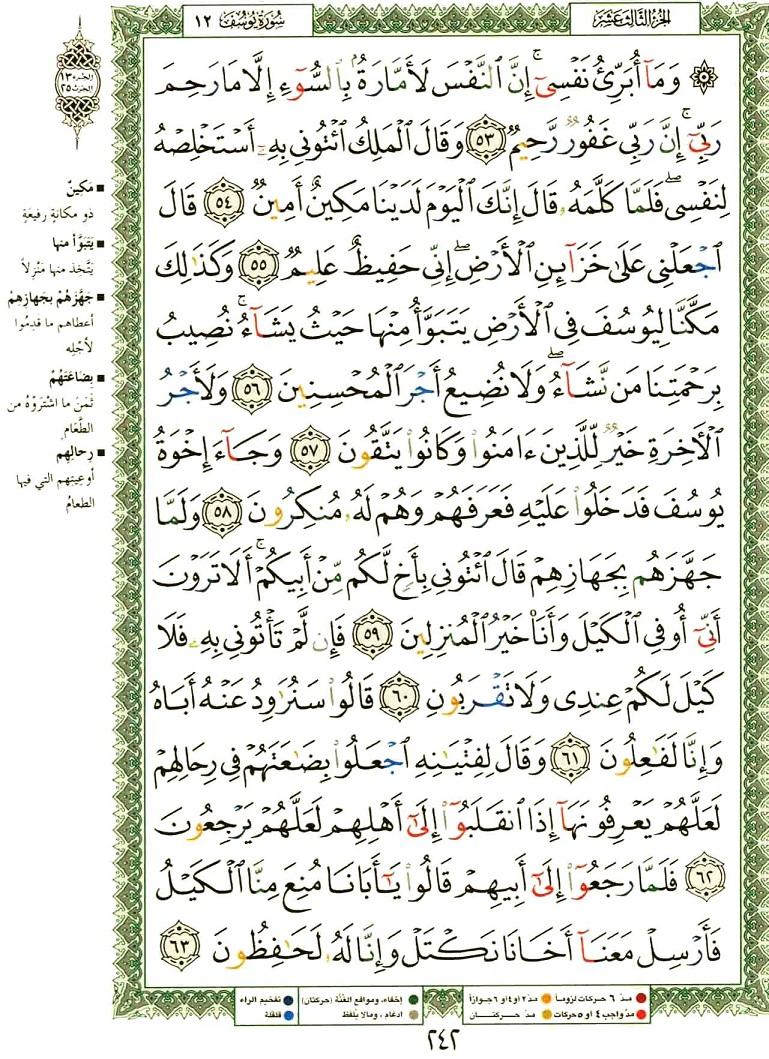 الجزء الثالث عشر
سورة يوسف ١٢
۞ وَمَآ أُبَرِّئُ نَفْسِىٓ ۚ إِنَّ ٱلنَّفْسَ لَأَمَّارَةٌۢ بِٱلسُّوٓءِ إِلَّا مَا رَحِمَ
رَبِّىٓ ۚ إِنَّ رَبِّى غَفُورٌ رَّحِيمٌ ٥٣ وَقَالَ ٱلْمَلِكُ ٱئْتُونِى بِهِۦٓ أَسْتَخْلِصْهُ
لِنَفْسِى ۖ فَلَمَّا كَلَّمَهُۥ قَالَ إِنَّكَ ٱلْيَوْمَ لَدَيْنَا مَكِينٌ أَمِينٌ ٥٤ قَالَ
ٱجْعَلْنِى عَلَىٰ خَزَآئِنِ ٱلْأَرْضِ ۖ إِنِّى حَفِيظٌ عَلِيمٌ ٥٥ وَكَذَٰلِكَ
مَكَّنَّا لِيُوسُفَ فِى ٱلْأَرْضِ يَتَبَوَّأُ مِنْهَا حَيْثُ يَشَآءُ ۚ نُصِيبُ
بِرَحْمَتِنَا مَن نَّشَآءُ ۖ وَلَا نُضِيعُ أَجْرَ ٱلْمُحْسِنِينَ ٥٦ وَلَأَجْرُ
ٱلْأَخِرَةِ خَيْرٌ لِّلَّذِينَ ءَامَنُوا۟ وَكَانُوا۟ يَتَّقُونَ ٥٧ وَجَآءَ إِخْوَةُ
يُوسُفَ فَدَخَلُوا۟ عَلَيْهِ فَعَرَفَهُمْ وَهُمْ لَهُۥ مُنكِرُونَ ٥٨ وَلَمَّا
جَهَّزَهُم بِجَهَازِهِمْ قَالَ ٱئْتُونِى بِأَخٍ لَّكُم مِّنْ أَبِيكُمْ ۚ أَلَا تَرَوْنَ
أَنِّىٓ أُوفِى ٱلْكَيْلَ وَأَنَا۠ خَيْرُ ٱلْمُنزِلِينَ ٥٩ فَإِن لَّمْ تَأْتُونِى بِهِۦ فَلَا
كَيْلَ لَكُمْ عِندِى وَلَا تَقْرَبُونِ ٦٠ قَالُوا۟ سَنُرَٰوِدُ عَنْهُ أَبَاهُ
وَإِنَّا لَفَٰعِلُونَ ٦١ وَقَالَ لِفِتْيَٰنِهِ ٱجْعَلُوا۟ بِضَٰعَتَهُمْ فِى رِحَالِهِمْ
لَعَلَّهُمْ يَعْرِفُونَهَآ إِذَا ٱنقَلَبُوٓا۟ إِلَىٰٓ أَهْلِهِمْ لَعَلَّهُمْ يَرْجِعُونَ
٦٢ فَلَمَّا رَجَعُوٓا۟ إِلَىٰٓ أَبِيهِمْ قَالُوا۟ يَٰٓأَبَانَا مُنِعَ مِنَّا ٱلْكَيْلُ
فَأَرْسِلْ مَعَنَآ أَخَانَا نَكْتَلْ وَإِنَّا لَهُۥ لَحَٰفِظُونَ ٦٣
الجزء ١٣
الحزب ٢٥
■ مَكِينٌ
ذو مكانةٍ رفيعَةٍ
■ يَتَبَوَّأ منها
يَتَّخِذ منها مَنْزِلاً
■ جَهَّزَهُمْ بجَهازِهِمْ
أعطاهم ما قدِمُوا
لأجْلِه
■ بِضَاعَتَهُمْ
ثَمَنَ ما اشْتَرَوْهُ من
الطَّعَام
■ رِحالِهِم
أوعِيَتِهِم التي فيها
الطعامُ
مدّ ٦ حركات لزوماً مدّ ٢ أو ٤ أو ٦ جوازاً
مدّ واجب ٤ أو ٥ حركات مدّ حركتان
إخفاء، ومواقع الغُنَّة (حركتان) تفخيم الراء
ادغام ، ومالا يُلفَظ قلقلة
٢٤٢